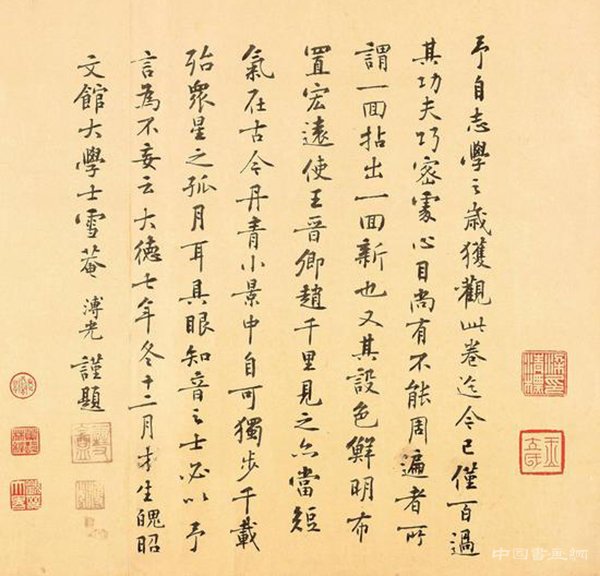 予自志學之歲獲觀此卷迄今已僅百過
其功夫巧密處心目尚有不能周遍者所
謂一面拈出一面新也又其設色鮮明布
置宏遠使王晉卿趙千里見之亦當短
氣在古今丹青小景中自可獨步千載
殆眾星之孤月耳具眼知音之士必以予
言為不妄云大德七年冬十二月才生魄昭
文館大學士雪菴溥光謹題
中国書画網